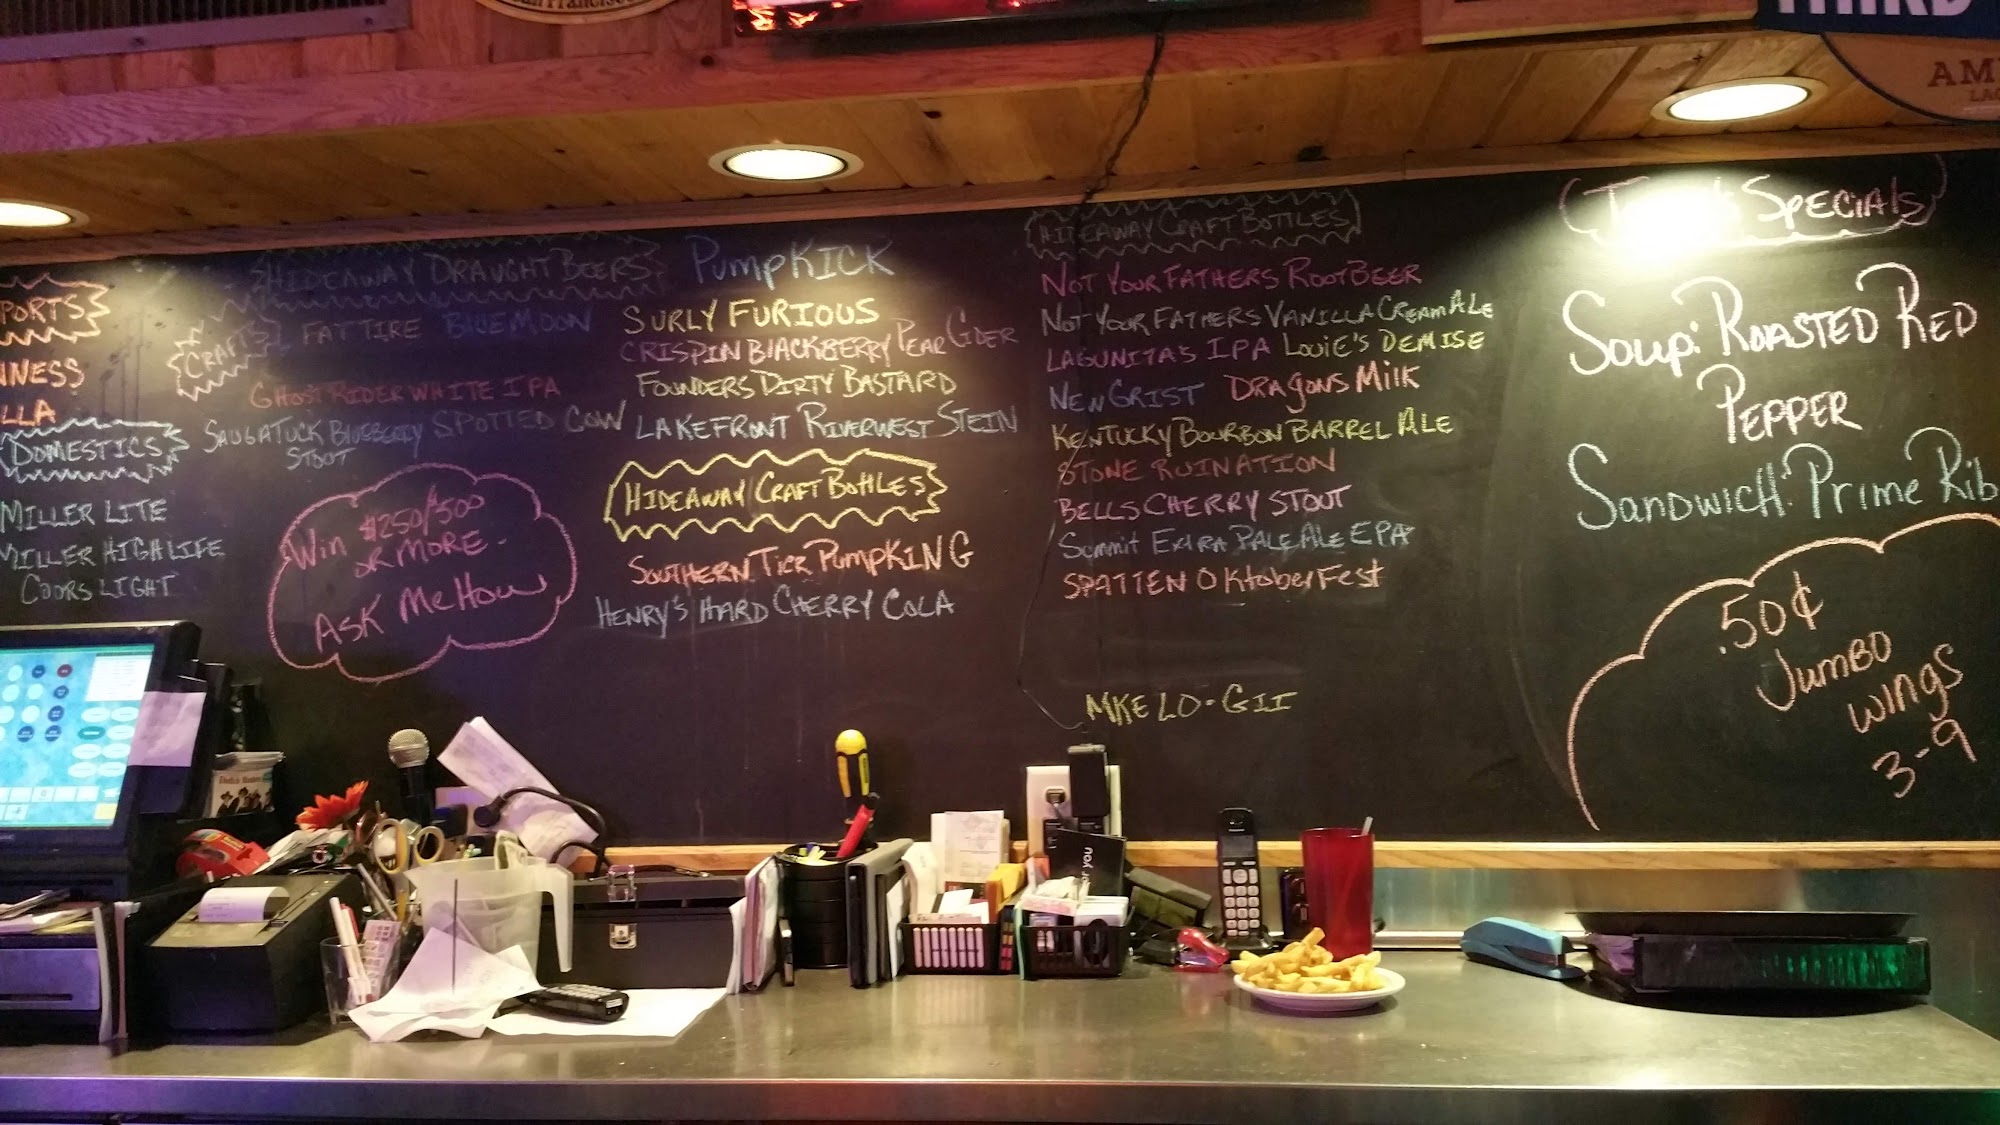 THIRD
AM
PORTS
NNESS
LLA
DOMESTICS
MILLER LITE
MILLER HIGH LIFE
COORS LIGHT
HIDEAWAY DRAUGHT BEERS
CRAFTS
FAT TIRE BLUE MOON
GHOST RIDER WHITE IPA
SAUGATUCK BLUEBERRY SPOTTED COW
STOUT
WIN $250/$500
OR MORE.
ASK ME HOW
PUMPKICK
SURLY FURIOUS
CRISPIN BLACKBERRY PEAR CIDER
FOUNDERS DIRTY BASTARD
LAKEFRONT RIVERWEST STEIN
HIDEAWAY CRAFT BOTTLES
SOUTHERN TIER PUMPKING
HENRY'S HARD CHERRY COLA
HIDEAWAY CRAFT BOTTLES
NOT YOUR FATHERS ROOT BEER
NOT YOUR FATHERS VANILLA CREAM ALE
LAGUNITAS IPA LOUIE'S DEMISE
NEW GRIST DRAGONS MILK
KENTUCKY BOURBON BARREL ALE
STONE RUINATION
BELLS CHERRY STOUT
Summit EXTRA PALE ALE EPA
SPATTEN OKtoberFest
MKE LO-GII
SPECIALS
SOUP: ROASTED RED
PEPPER
SANDWICH: PRIME RIB
.50¢
JUMBO
WINGS
3-9